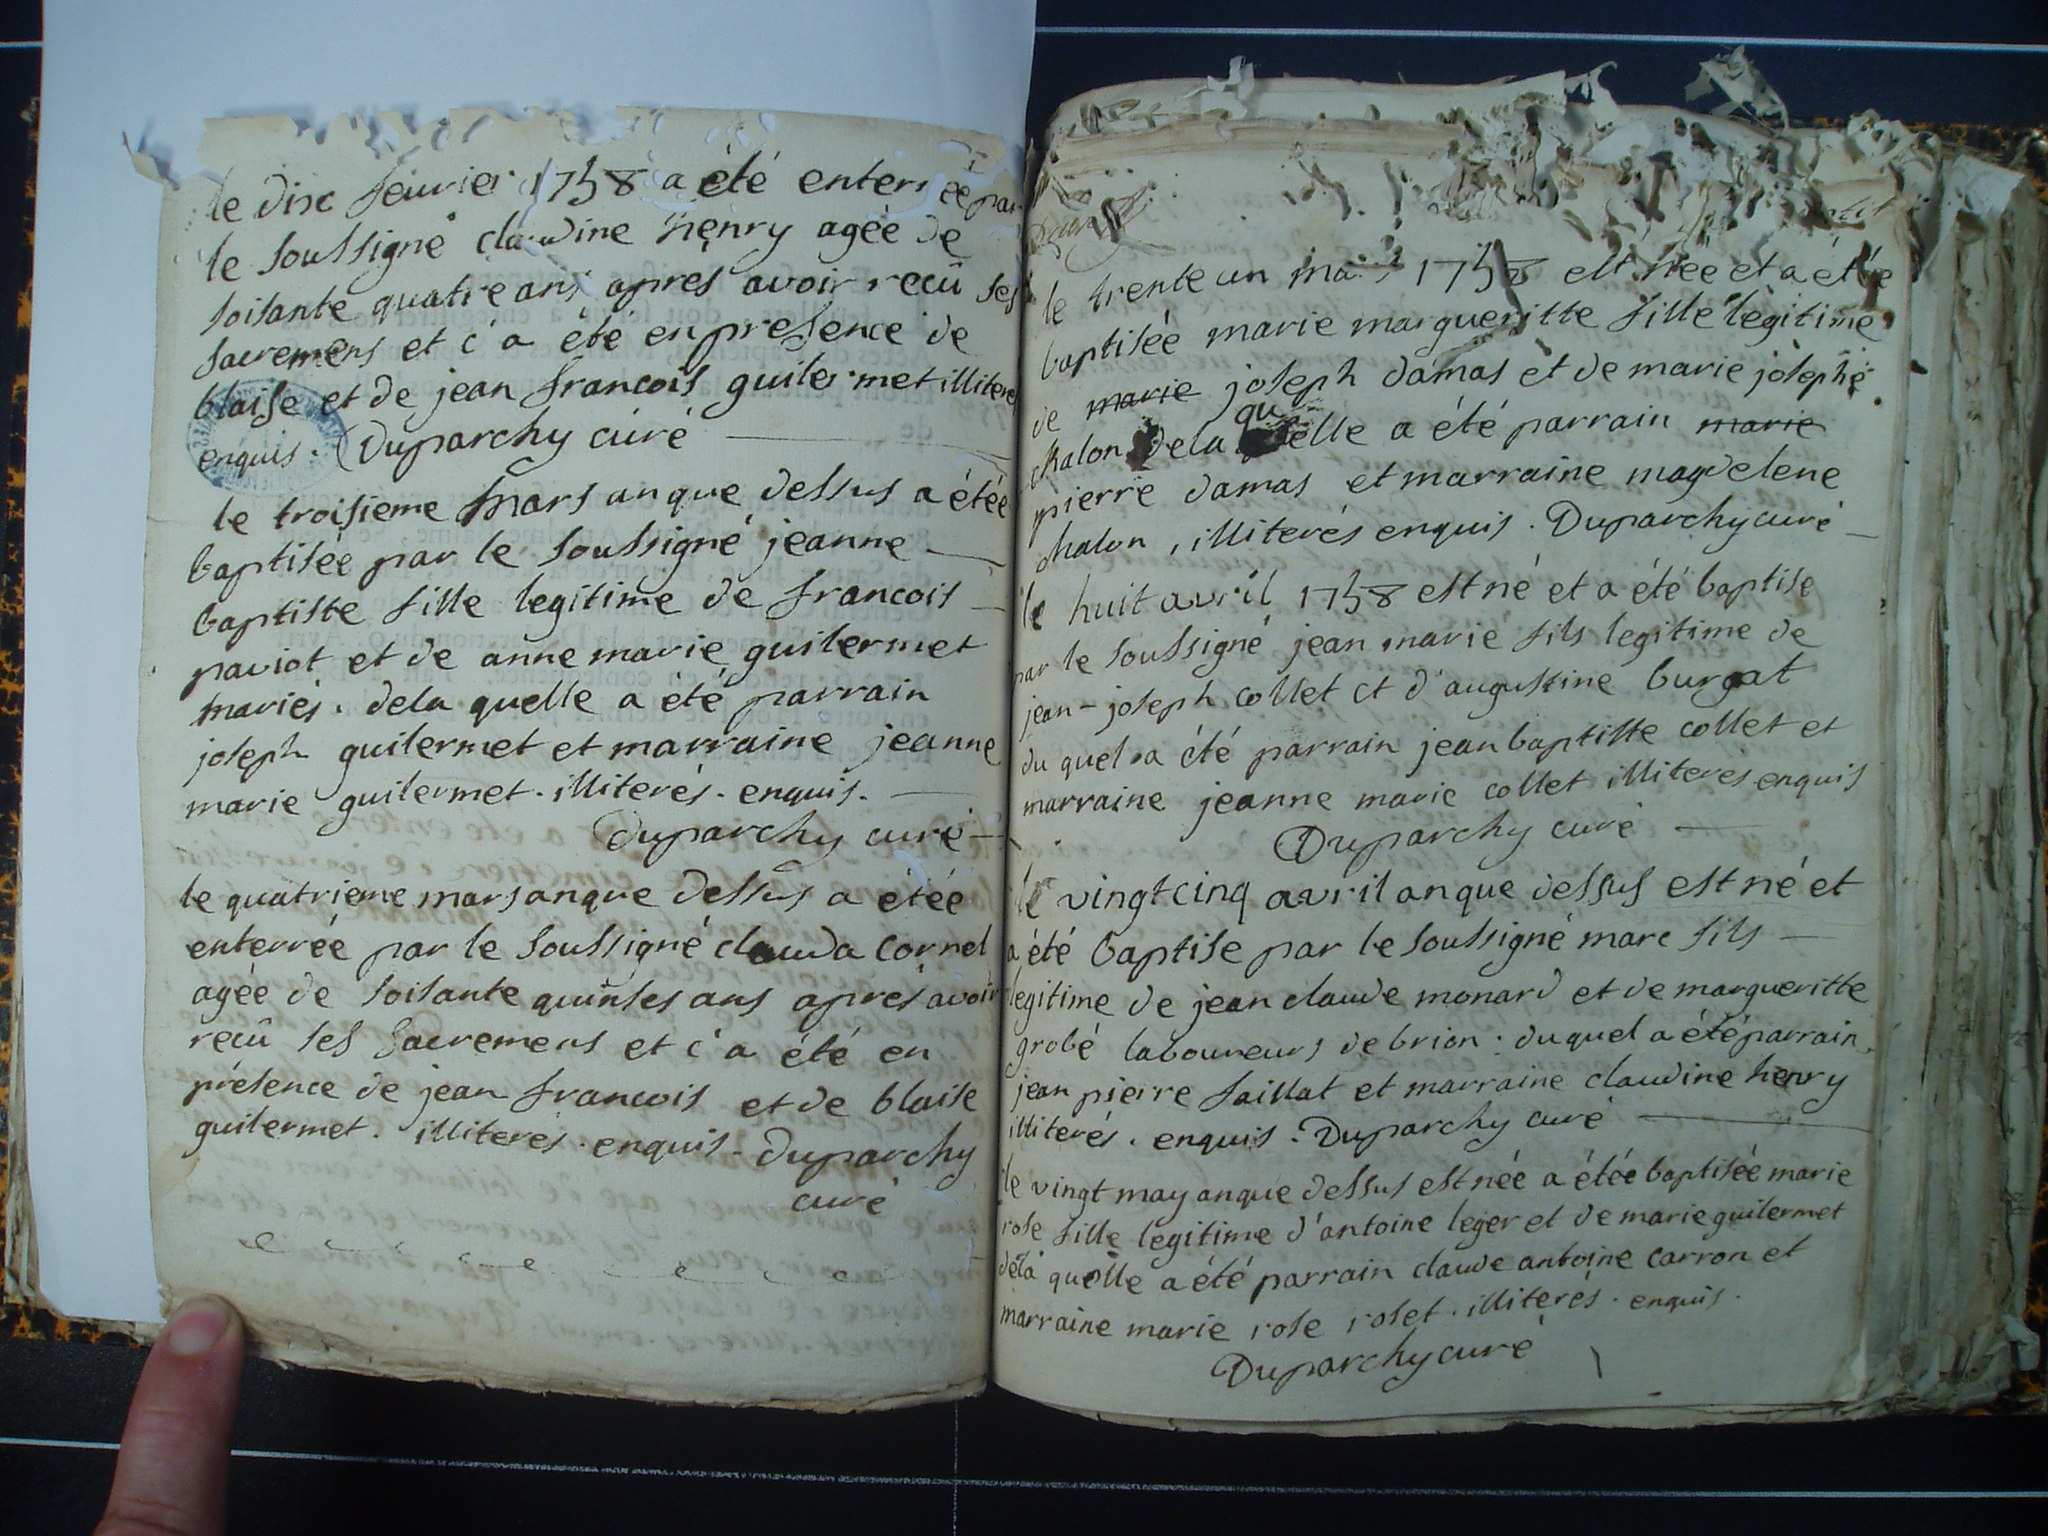 le disc feuvrier 1758 a été enterrée par
le soussigné claudine henry agée de
soisante quatre ans aprés avoir recû ses
sacremens et c'a été en presence de
blaise et de jean francois guilermet illiteres
enquis. Duparchy curé
le troisieme mars an que dessus a étée
baptisée par le soussigné jeanne
baptiste fille legitime de francois
paviot et de anne marie guilermet
mariés. dela quelle a été parrain
joseph guilermet et marraine jeanne
marie guilermet. illiterés. enquis.
Duparchy curé
le quatrieme mars an que dessus a étée
enterrée par le soussigné clauda cornel
agée de soisante quinses ans aprés avoir
recû ses sacremens et c'a été en
présence de jean francois et de blaise
guilermet. illiterés. enquis. Duparchy
curé
le trente un mars 1758 est née et a étée
baptisée marie margueritte fille legitime
de marie joseph damas et de marie josephe
chalon dela quelle a été parrain marie
pierre damas et marraine magdelene
chalon, illiterés enquis. Duparchy curé
le huit avril 1758 est né et a été baptise
par le soussigné jean marie fils legitime de
jean-joseph collet et d'augustine burgat
du quel a été parrain jean baptiste collet et
marraine jeanne marie collet illiteres enquis
Duparchy curé
le vingt cinq avril an que dessus est né et
a été baptise par le soussigné marc fils
legitime de jean claude monard et de margueritte
grobé laboureurs de brion. du quel a été parrain
jean pierre faillat et marraine claudine henry
illiterés. enquis. Duparchy curé
le vingt may an que dessus est née a étée baptisée marie
rose fille legitime d'antoine leger et de marie guilermet
dela quelle a été parrain claude antoine carron et
marraine marie rose roset. illiterés. enquis.
Duparchy curé